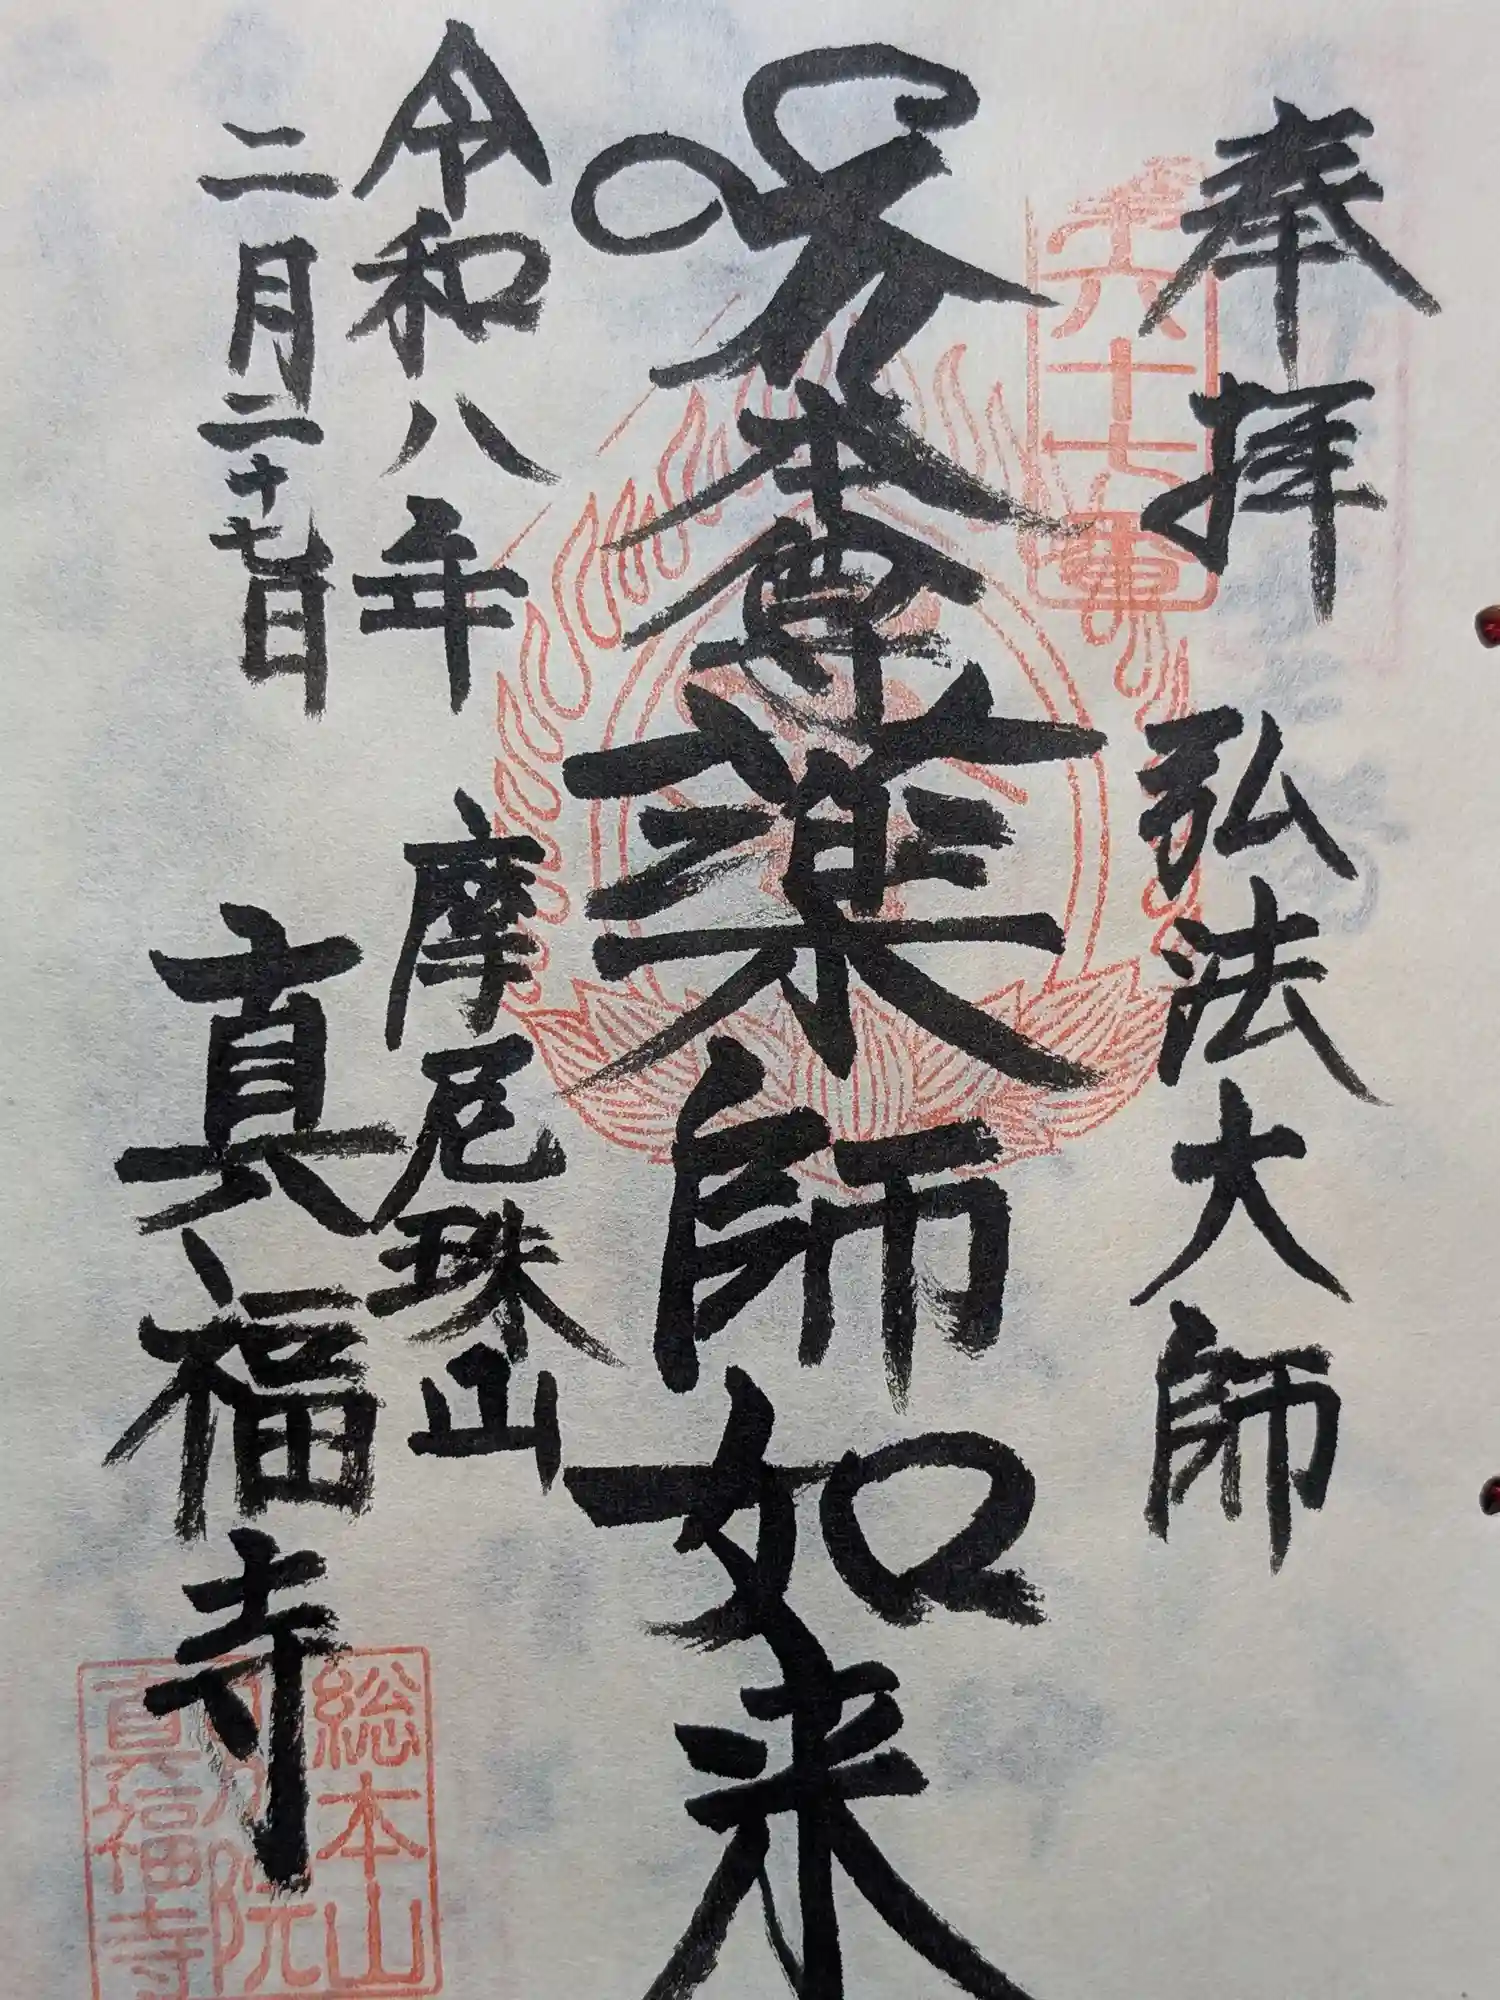 奉拝 弘法大師
第六十七番
本尊薬師如来
令和八年
二月二十七日
摩尼珠山
真福寺
総本山
院
真福寺